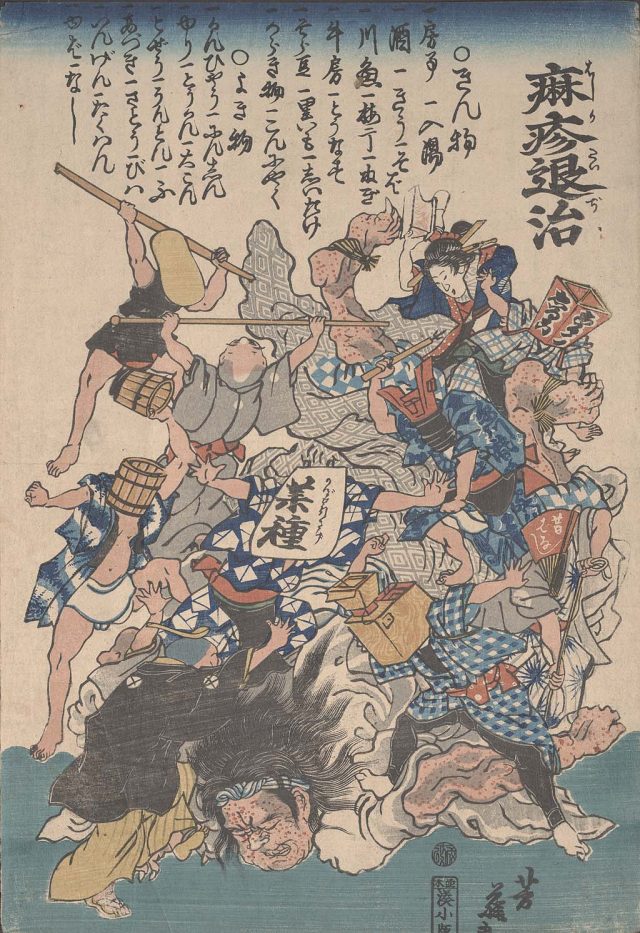 麻疹退治
はしか たいぢ
〇きん物
一房事 一入湯
一酒 一きうり 一そば
一川魚 一梅干 一ねぎ
一牛房 一とうなす
一そら豆 一里いも 一しいたけ
一からき物 一こんにやく
〇よき物
一かんひやう 一にんじん
一ゆり 一とうくわん 一大こん
一とせう 一うとん 一ふ
一あづき 一さとう 一びハ
いんげん 一たくハん
一ゆば 一なし
薬種
昔ばなし
芳藤画
湊小版